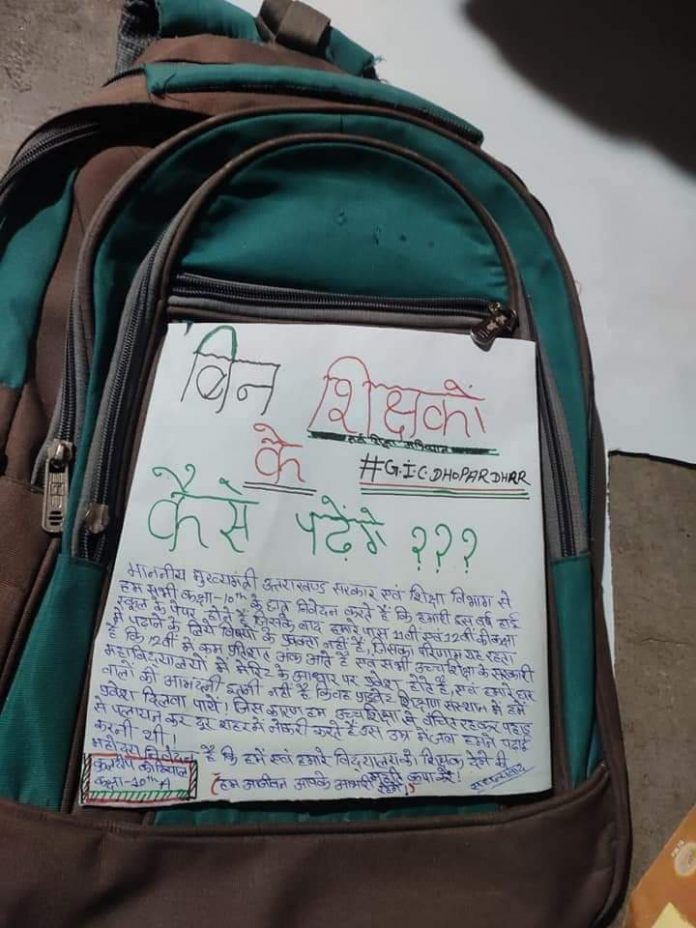 बिन शिक्षकों
के #G.I.C.DHOPARDHAR
कैसे पढ़ेंगे ???
माननीय मुख्यमंत्री उत्तराखण्ड सरकार एवं शिक्षा विभाग से
हम सभी कक्षा-10th के छात्र निवेदन करते हैं कि हमारी इस वर्ष हाई
स्कूल के पेपर होते हैं जिसके बाद हमारे पास 11वीं एवं 12वीं की कक्षा
में पढ़ाने के लिये विषयों के प्रवक्ता नहीं है, जिसका परिणाम यह रहता
है कि 12वीं में कम प्रतिशत अंक आते हैं एवं सभी उच्चशिक्षा के सरकारी
महाविद्यालयों में मेरिट के आधार पर प्रवेश होते हैं, एवं हमारे घर
वालों की आमदनी इतनी नहीं है कि वह प्राइवेट शिक्षण संस्थान में हमें
प्रवेश दिलवा पायें। जिस कारण हम उच्चशिक्षा से वंचित रहकर पहाड़
से पलायन कर दूर शहर में नौकरी करते हैं उस उम्र में जब हमने पढ़ाई
करनी थी।
महोदय निवेदन है कि हमें एवं हमारे विद्यालय को शिक्षक देने की
कृपा करें!
कक्षा-10th A
(हम आजीवन आपके आभारी रहेंगे।)